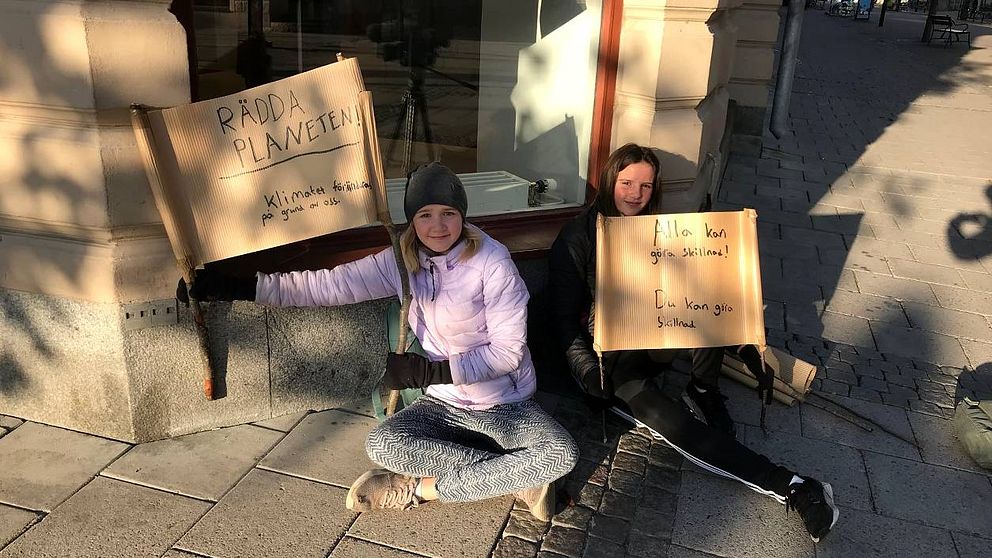 RÄDDA
PLANETEN!
Klimatet förändras
på grund av oss.
Alla kan
göra skillnad!
Du kan göra
skillnad